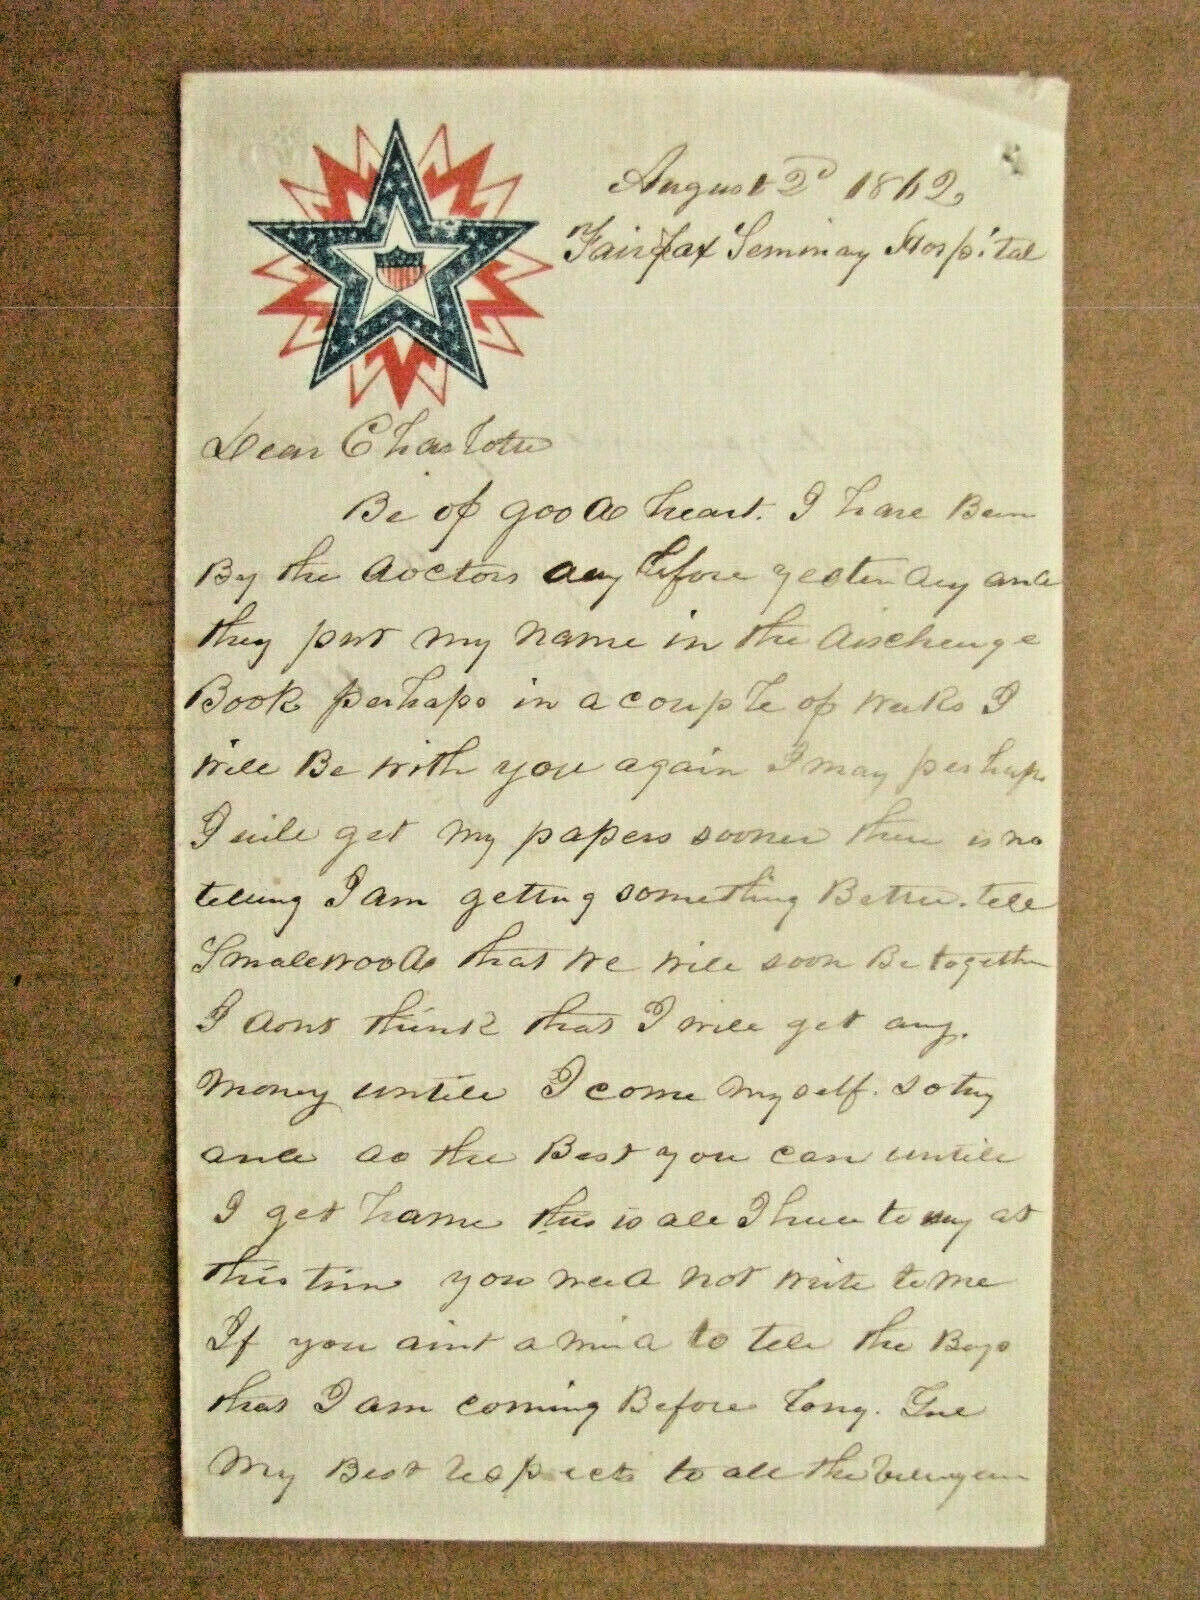 August 2d 1862,
Fairfax Seminay Hospital
Dear Charlotte
Be of good heart. I have Been
By the doctors day before yesterday and
they put my name in the discharge
Book perhaps in a couple of weeks I
will Be with you again I may perhaps
I will get my papers sooner there is no
telling I am getting something Better. tell
Smallwoods that we will soon Be together
I dont think that I will get any.
money untill I come myself. so try
and do the Best you can untill
I get hame this is all I have to say at
this time you need not write to me
If you aint a mind to tell the Boys
that I am coming Before long. Give
My Best respects to all the